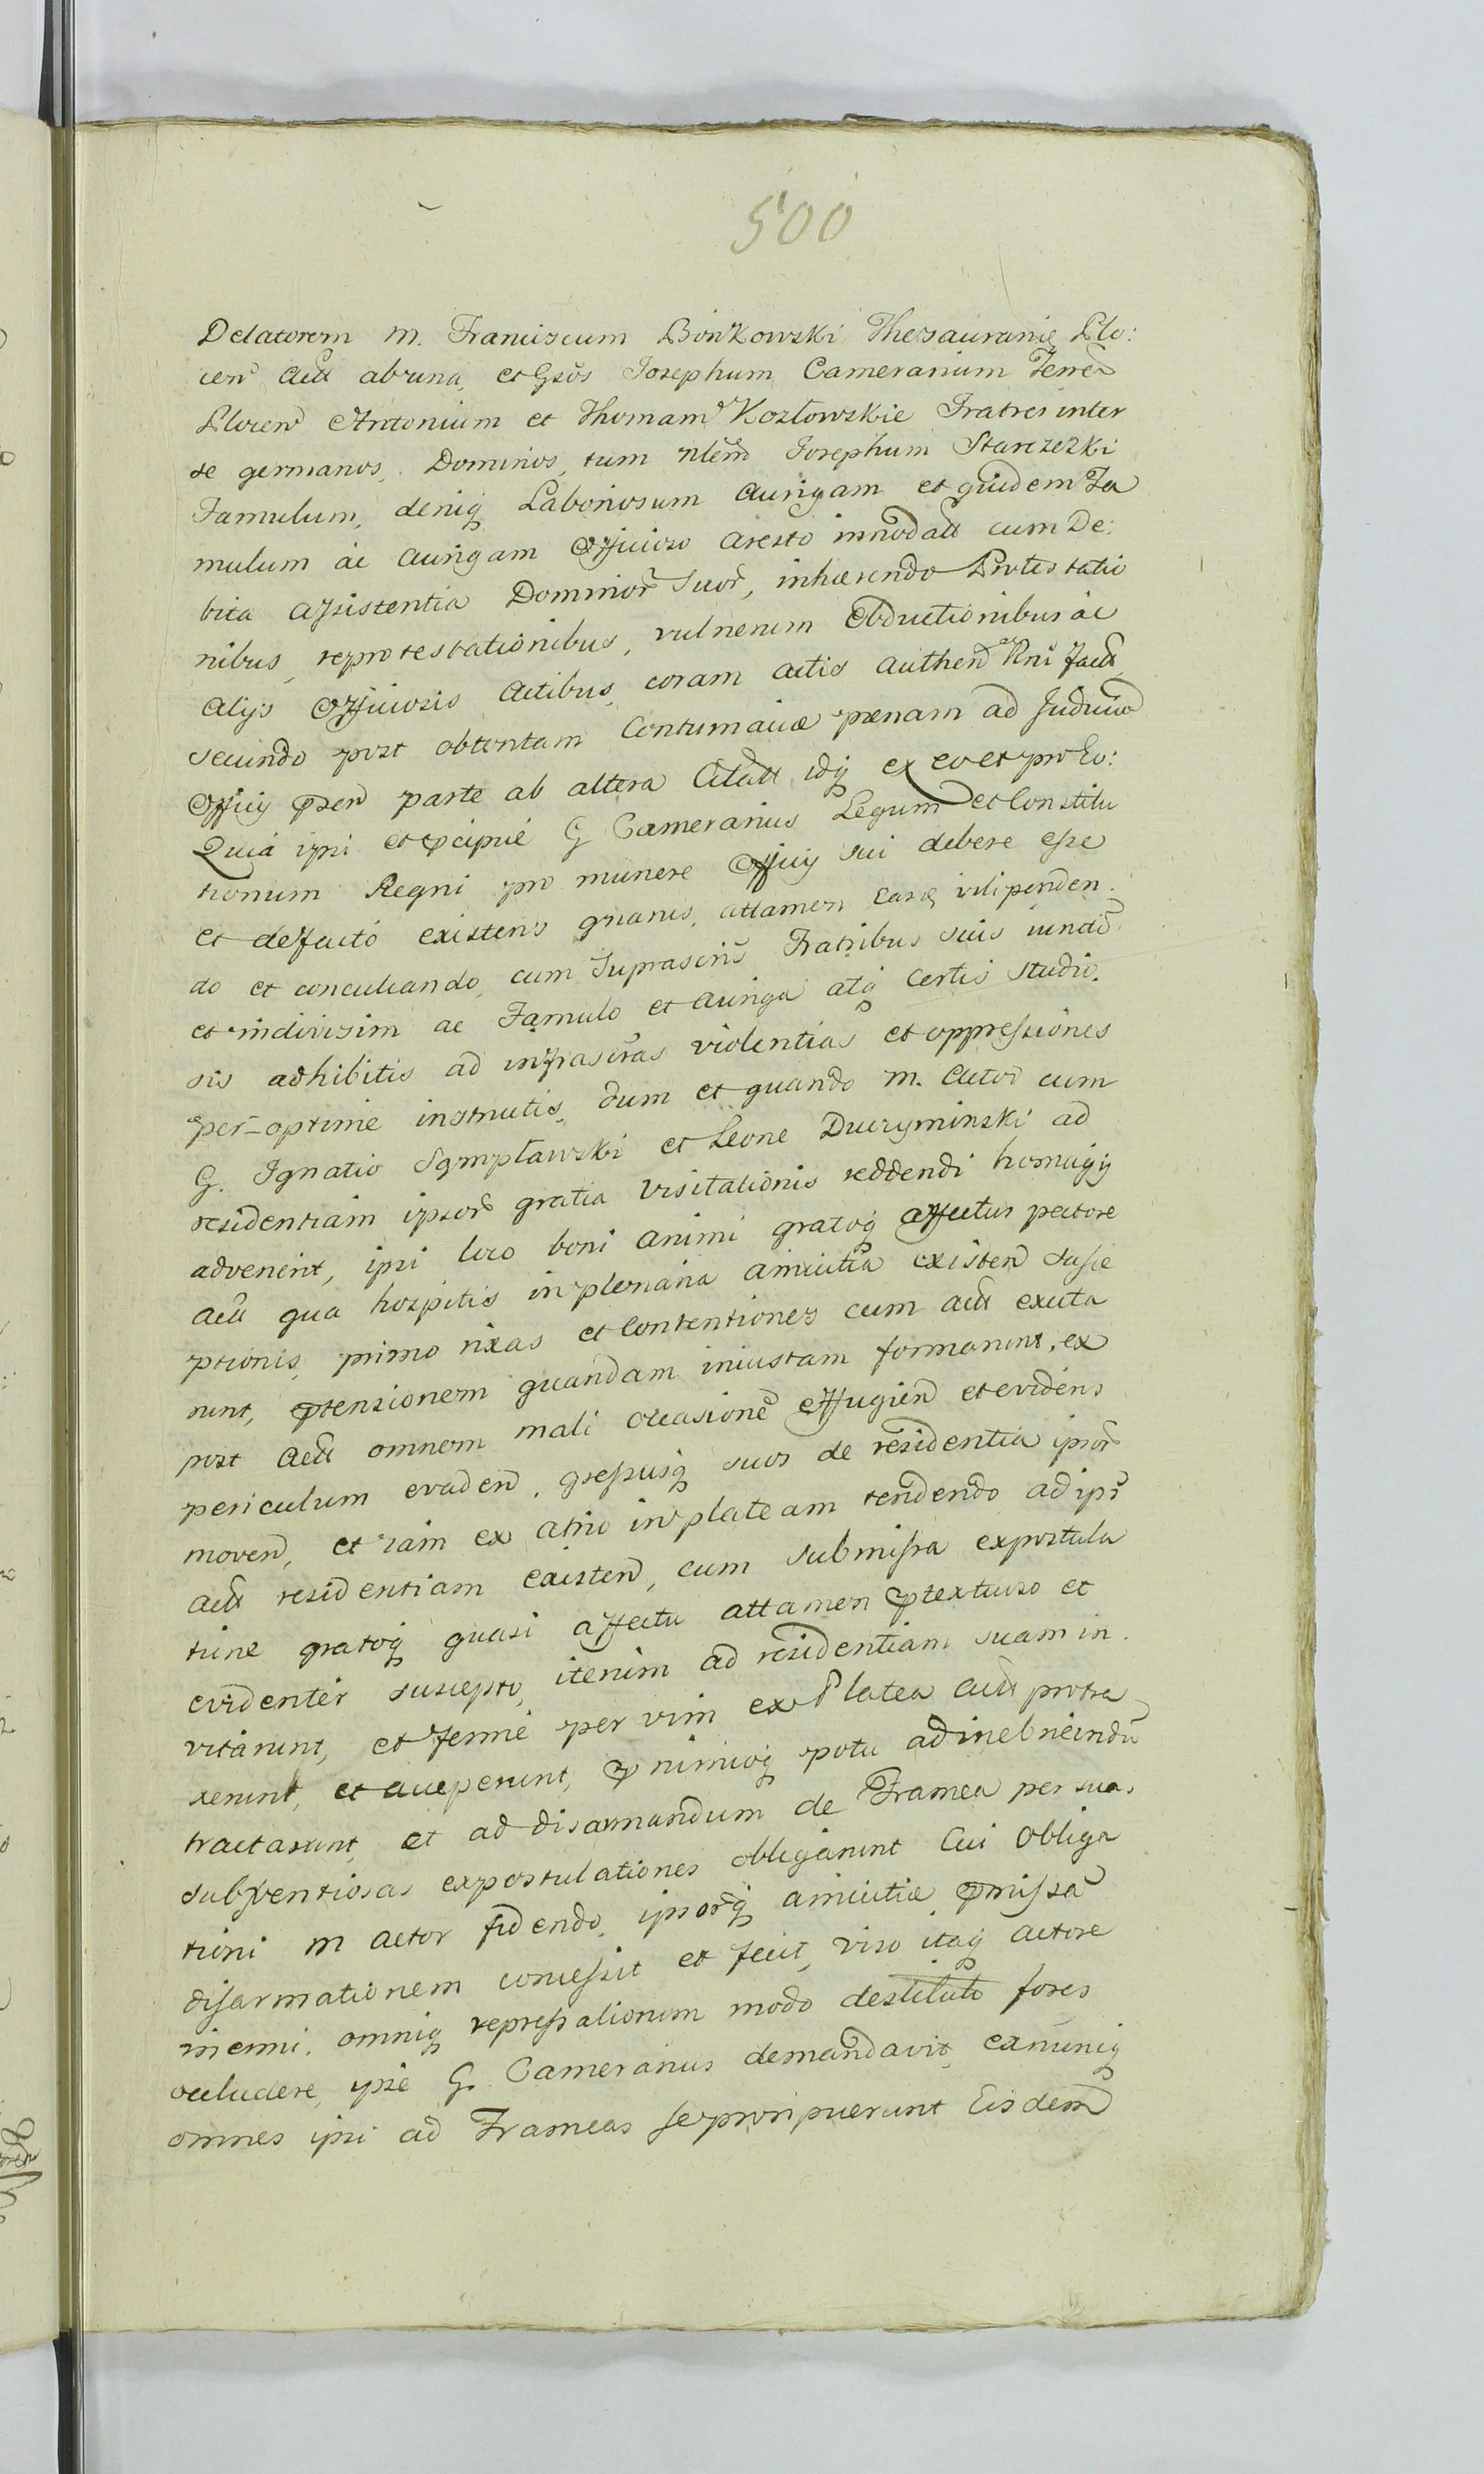 500
Delatorem M. Franciscum Bońkowski Thesaurarie Plo:
cen Act ab una, et Gsos Josephum Camerarium Terre
Plocen Antonium et Thomam Kozłowskie Fratres inter
se germanos, Dominos, tum Josephum Starczezki
Famulum, deniq Laboriosum Aurigam et quidem Fa
mulum ac Aurigam Officioso Aresto innodatt cum De:
bita Assistentia Dominor Suor, inhærendo Protestatio
nibus, reprotestationibus, vulnerum Obductionibus ac
Alijs Officiosis Actibus, coram Actis Authen fact,
secundo post obtentam Contumaciæ pænam ad Judiciu
Officij psen parte ab altera Citatt idq ex eo et pro Eo:
Quia ipsi et pcipue G Camerarius Legum et Constitu
tionum Regni pro munere Officij sui debere esse
et de facto existens gnarus, attamen easq vilipenden:
do et conculcando, cum Suprascris Fratribus suis iunctì
et indivisim ac Famulo et Auriga atq certis studio:
sis adhibitis ad infrascras violentias et oppressiones
per-optime instructis, dum et quando M. Actor cum
G. Ignatio Sępmpławski et Leone Duczyminski ad
residentiam ipsor gratia Visitationis reddendi homagij
advenerit, ipsi loco boni Animi gratoq affectus pectore
Act qua hospitis in plenaria Amicitia existen Susce
ptionis, primo rixas et Contentiones cum Act exerta
runt, ptensionem quandam iniustam formarunt, ex
post Act omnem mali occasione effugien et evidens
periculum evaden, gressusq suos de residentia ipsor
moven, et iam ex Atrio in plateam tendendo ad ips
Act residentiam existen, cum Submissa expostula
tione gratoq quasi affectu attamen ptextuoso et
evidenter suscepto, iterum ad residentiam suam in:
vitarunt, et ferme per vim ex Platea Act protra
xerunt, et acceperunt, nimioq potu ad inebrieindu
tractarunt, et ad disarmandum de Framea per suas
subventiosas expostulationes obligarunt Cui Obliga
tioni M Actor fidendo, ipsorq Amicitiæ pmissa
disarmationem concessit et fecit, viso itaq Actore
inermi, omniq repressalionum modo destituto fores
occludere, ipse G. Camerarius demandavit, extunciq
omnes ipsi ad Frameas se proripuerunt Eisdem